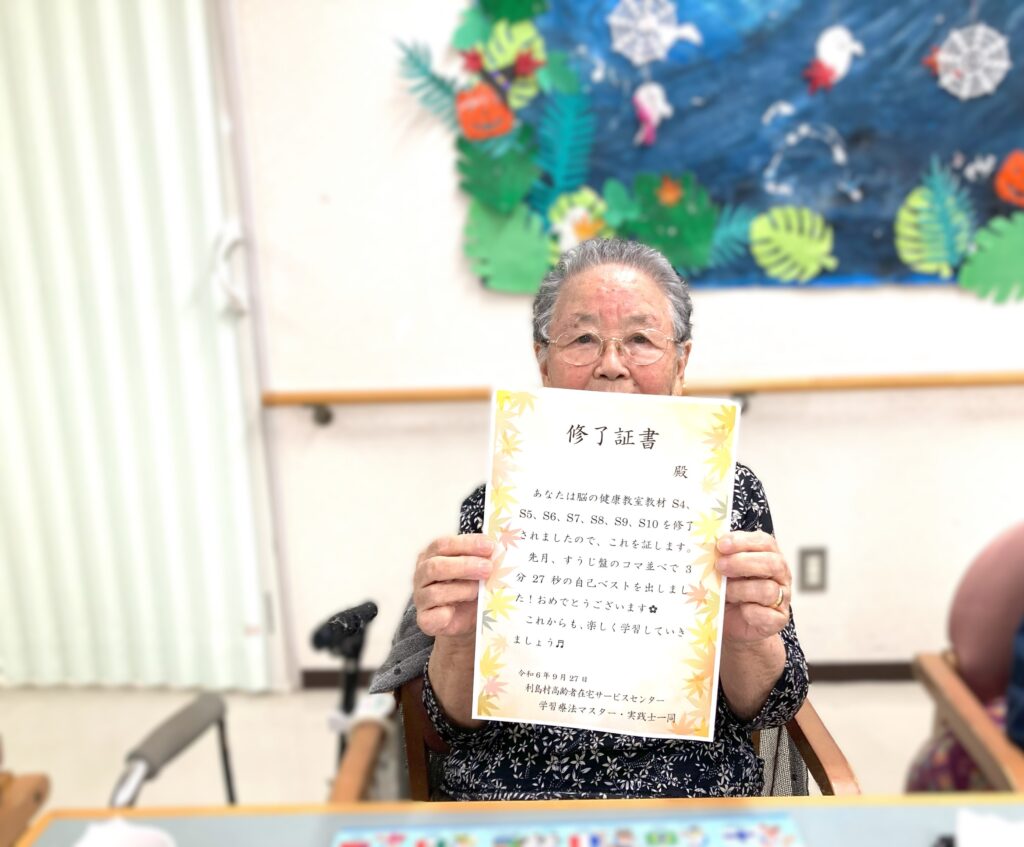 修了証書
殿
あなたは脳の健康教室教材 S4、
S5、S6、S7、S8、S9、S10 を修了
されましたので、これを証します。
先月、すうじ盤のコマ並べで 3
分 27 秒の自己ベストを出しまし
た！おめでとうございます✿
これからも、楽しく学習していき
ましょう♬
令和6年9月27日
利島村高齢者在宅サービスセンター
学習療法マスター・実践士一同